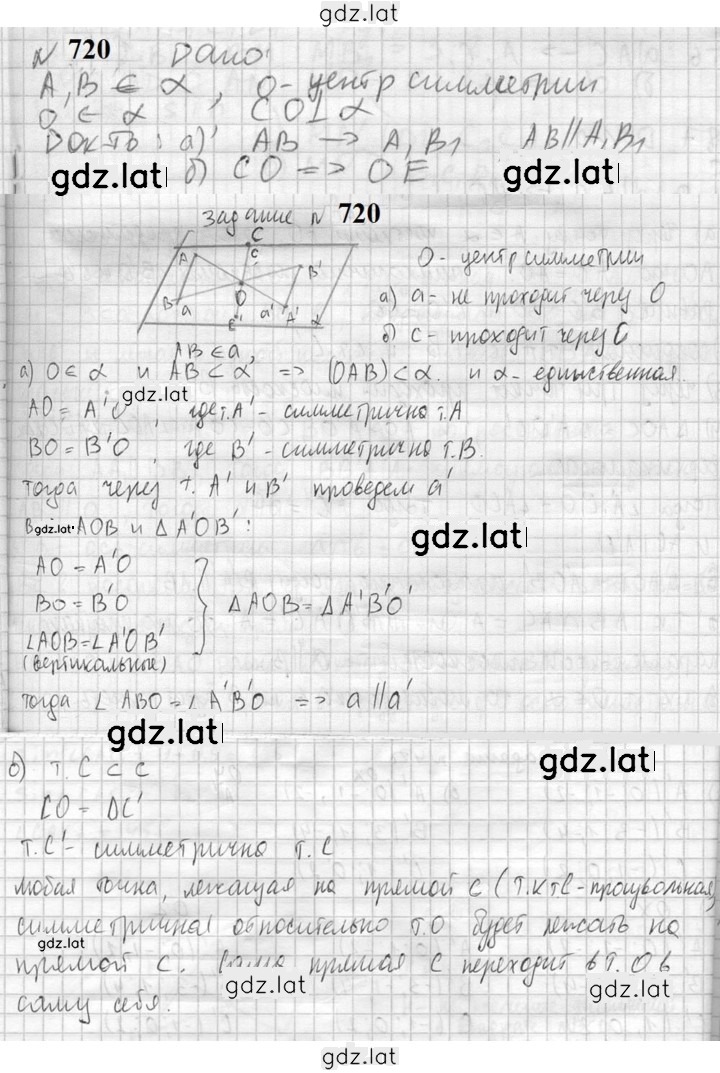 gdz.lat
N 720 Дано:
A, B ∈ α, O - центр симметрии
O ∈ α, CO⊥α
Док-ть: а) AB → A₁B₁ AB∥A₁B₁
gdz.lat
gdz.lat
б) CO => OE
Задание N 720
C
A C
B'
B O
a a' A'
E α
O - центр симметрии
а) a - не проходит через O
б) c - проходит через O.
AB ∈ a,
а) O ∈ α и AB ⊂ α => (OAB) ⊂ α. и α - единственная.
gdz.lat
AO = A'O, где т.A' - симметрично т.A
BO = B'O, где B' - симметрично т.B.
тогда через т. A' и B' проведем a'
В gdz.lat AOB и Δ A'OB':
gdz.lat
AO = A'O
BO = B'O } ΔAOB = ΔA'B'O'
∠AOB = ∠A'OB'
(вертикальные)
тогда ∠ ABO = ∠ A'B'O => a ∥ a'
gdz.lat
gdz.lat
б) т. C ⊂ c
CO = OC'
т.C' - симметрично т. C
любая точка, лежащая на прямой c (т.к т C - произвольная)
симметричная относительно т.O будет лежать на
gdz.lat
прямой c. прямая c переходит в т. O в
gdz.lat
gdz.lat
саму себя.
gdz.lat